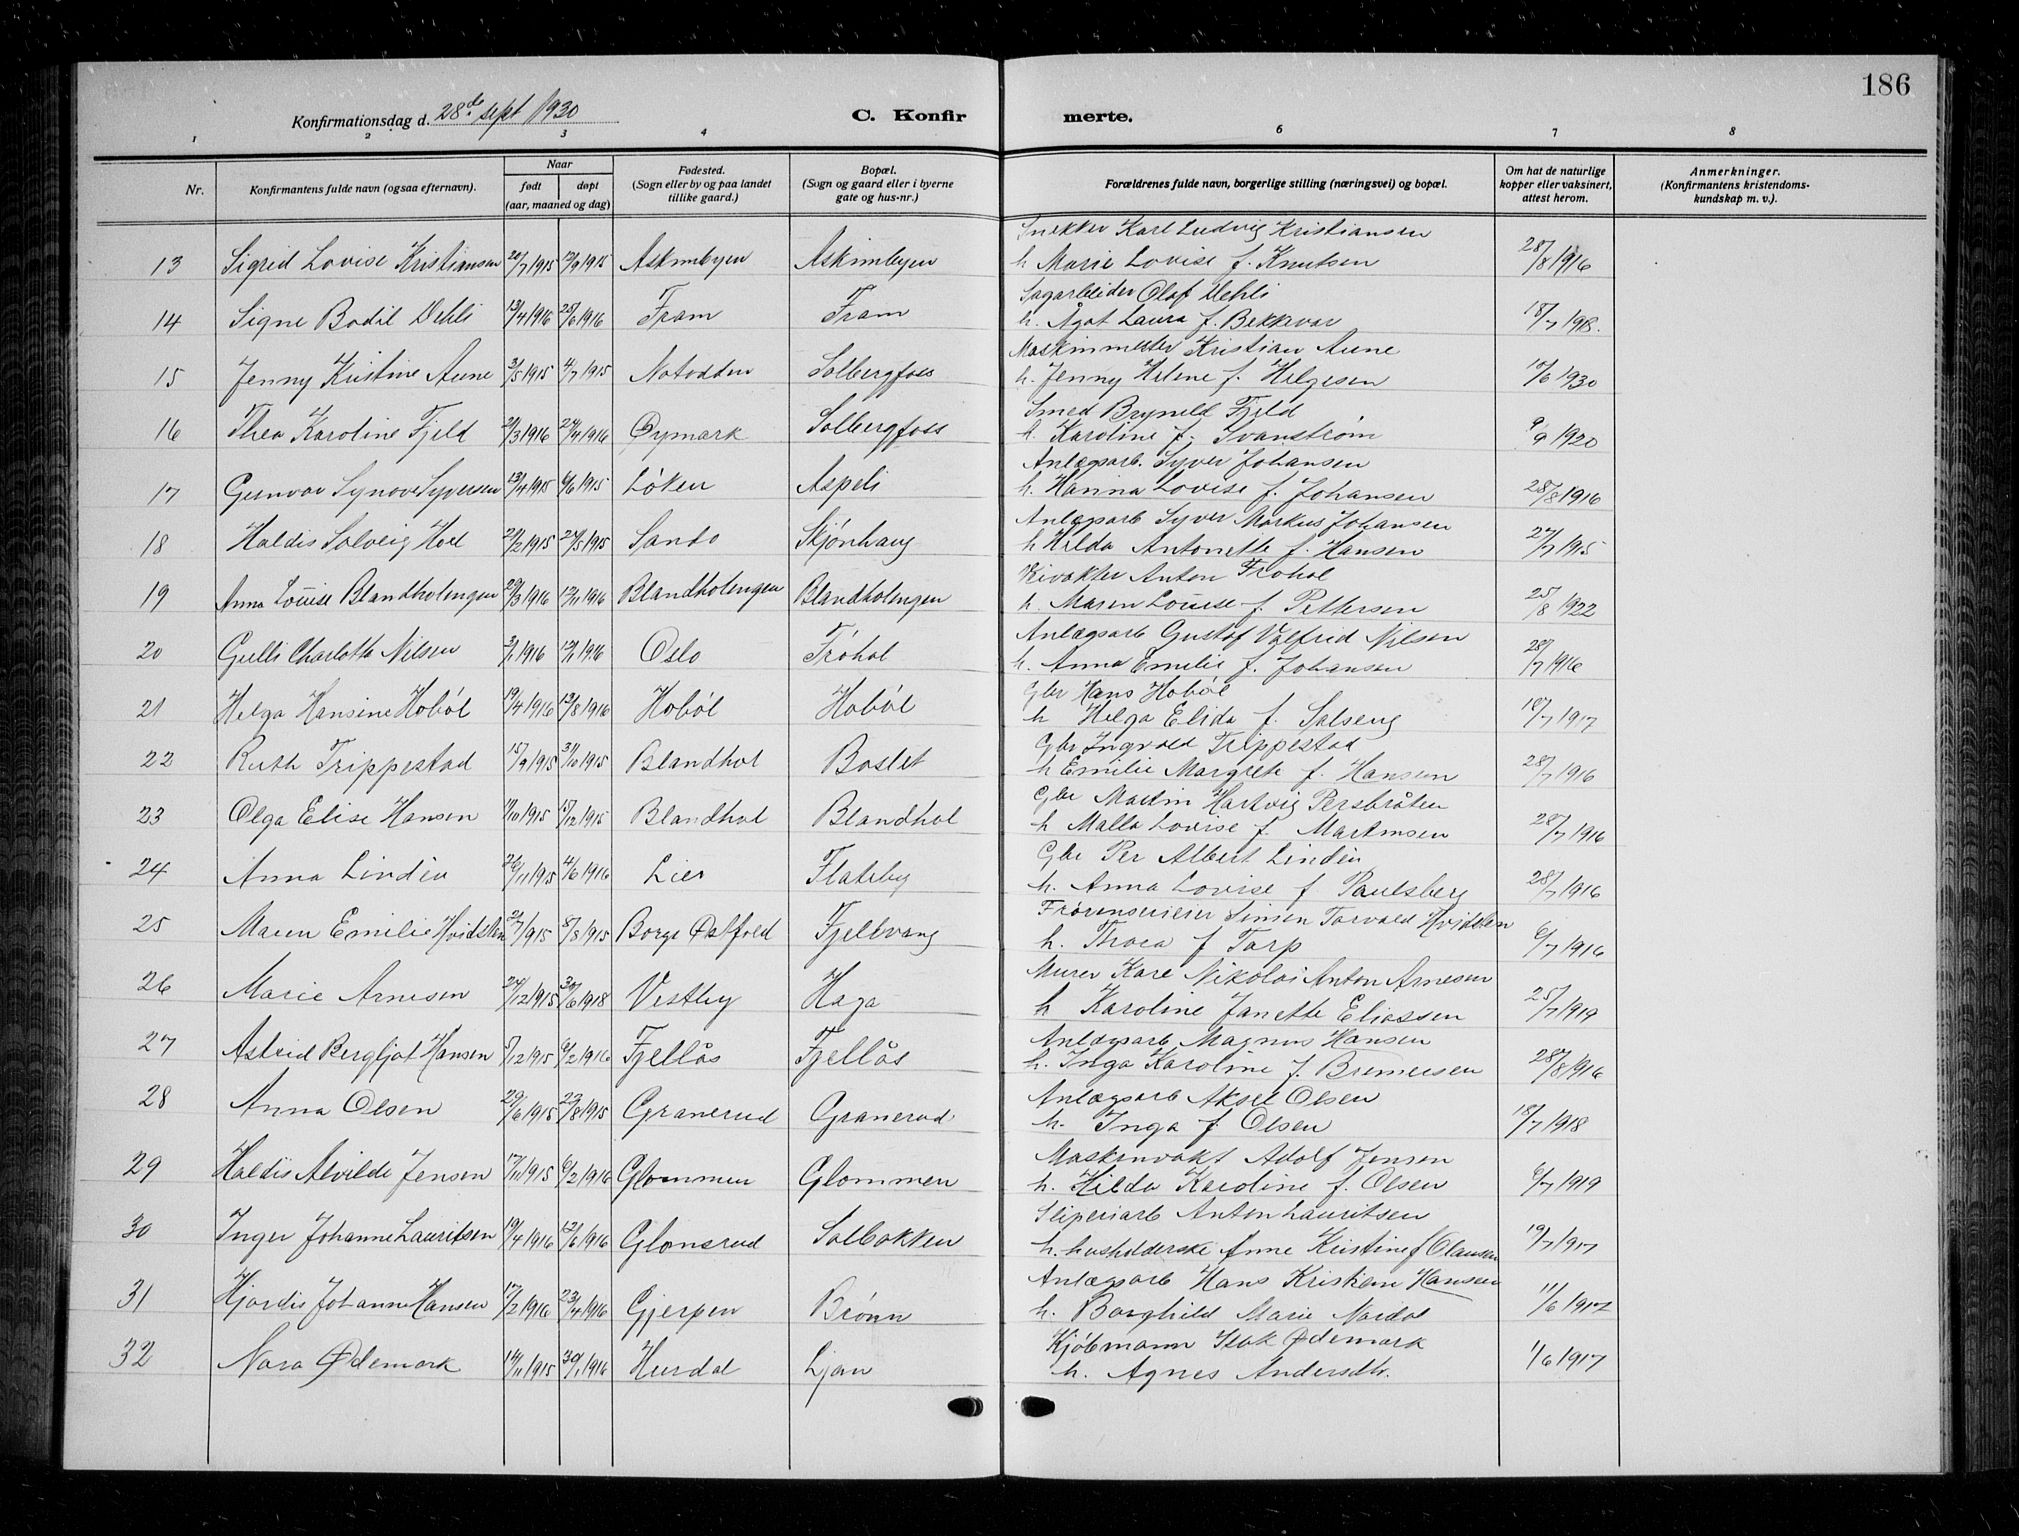 186
Konfirmationsdag d. 28de sept 1930
C. Konfirmerte.
1 2 3 4 6 7 8
Nr.
Konfirmantens fulde navn (ogsaa efternavn).
Naar
født døpt
(aar, maaned og dag)
Fødested.
(Sogn eller by og paa landet
tillike gaard.)
Bopæl.
(Sogn og gaard eller i byerne
gate og hus-nr.)
Forældrenes fulde navn, borgerlige stilling (næringsvei) og bopæl.
Om hat de naturlige
kopper eller vaksinert,
attest herom.
Anmerkninger.
(Konfirmantens kristendoms-
kundskap m. v.).
Snekker Karl Ludvig Kristiansen
13 Sigrid Lovise Kristiansen 20/7 1915 12/9 1915 Askimbyen Askimbyen h. Marie Lovise f. Knutsen 28/8 1916
Sagarbeider Olaf Dehli
14 Signe Bodil Dehli 13/4 1916 25/6 1916 Fram Fram h. Ågot Laura f. Bekkevar 18/7 1918.
Maskinmester Kristian Aune
15 Jenny Kristine Aune 3/5 1915 4/7 1915 Notodden Solbergfoss h. Jenny Helene f. Helgesen 10/6 1930
Smed Brynild Fjeld
16 Thea Karoline Fjeld 29/3 1916 24/4 1916 Øymark Solbergfoss h. Karoline f. Svanstrøm 9/9 1920
Anlægsarb. Syver Johansen
17 Gunvor Synove Syversen 13/4 1915 6/6 1915 Løken Aspeli h. Hanna Lovise f. Johansen 28/8 1916
Anlægsarb Syver Markus Johansen
18 Haldis Solveig Hoel 21/2 1915 24/5 1915 Sando Skjønhaug h Hilda Antonette f. Hansen 27/7 1915
Anton Frohol
19 Anna Louise Blandholengen 29/3 1916 12/11 1916 Blandholengen Blandholengen h. Maren Louise f. Pettersen 25/8 1922
Anlægsarb Gustof Valfrid Nilsen
20 Gulli Charlotta Nilsen 3/1 1916 12/11 1916 Oslo Frøhol h. Anna Emilie f. Johansen 28/7 1916
Gbr Hans Hobøl
21 Helga Hansine Hobøl 19/4 1916 13/8 1916 Hobøl Hobøl h Helga Elida f. Salseng 18/7 1917
Gbr Ingvald Trippestad
22 Ruth Trippestad 15/9 1915 31/10 1915 Blandhol Boslet h Emilie Margrete f. Hansen 28/7 1916
Gbr Martin Hartvig Persbråten
23 Olga Elise Hansen 11/10 1915 15/12 1915 Blandhol Blandhol h Malla Lovise f. Martinsen 28/7 1916
Gbr Per Albert Lindén
24 Anna Lindén 26/11 1915 4/6 1916 Lier Flateby h. Anna Lovise f Paulsberg 28/7 1916
Simen Torvald Hvidsten
25 Maren Emilie Hvidsten 2/7 1915 8/8 1915 Borge Østfold Fjellvang h. Thora f Torp 6/7 1916
Murer Kare Nikolai Anton Arnesen
26 Marie Arnesen 24/12 1915 30/6 1918 Vestby Haga h Karoline Janette Eliassen 25/7 1919
Anlægsarb Magnus Hansen
27 Astrid Bergljot Hansen 5/12 1915 6/2 1916 Fjellås Fjellås h. Inga Karoline f. Bremersen 28/8 1916
Anlægsarb Aksel Olsen
28 Anna Olsen 29/6 1915 22/8 1915 Granerud Granerud h. Inga f Olsen 18/7 1918
Maskinvakt Adolf Jensen
29 Haldis Alvilde Jensen 17/11 1915 6/2 1916 Glommen Glommen h. Hilda Karoline f. Olsen 6/7 1919
Sliperiarb Anton Lauritsen
30 Inger Johanne Lauritsen 19/4 1916 12/6 1916 Glonsrud Solbakken h. husholderske Anne Kristine f Olausen 19/7 1917
Anlægsarb Hans Kristian Hansen
31 Hjordis Johanne Hansen 17/2 1916 23/4 1916 Gjerpen Brønn h. Borghild Marie Nordal 11/6 1917
Kjøbmann Isak Ødemark
32 Nora Ødemark 14/11 1915 30/1 1916 Hurdal Ljan h. Agnes Andersdtr. 1/6 1917